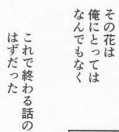 その花は
俺にとっては
なんでもなく
これで終わる話の
はずだった